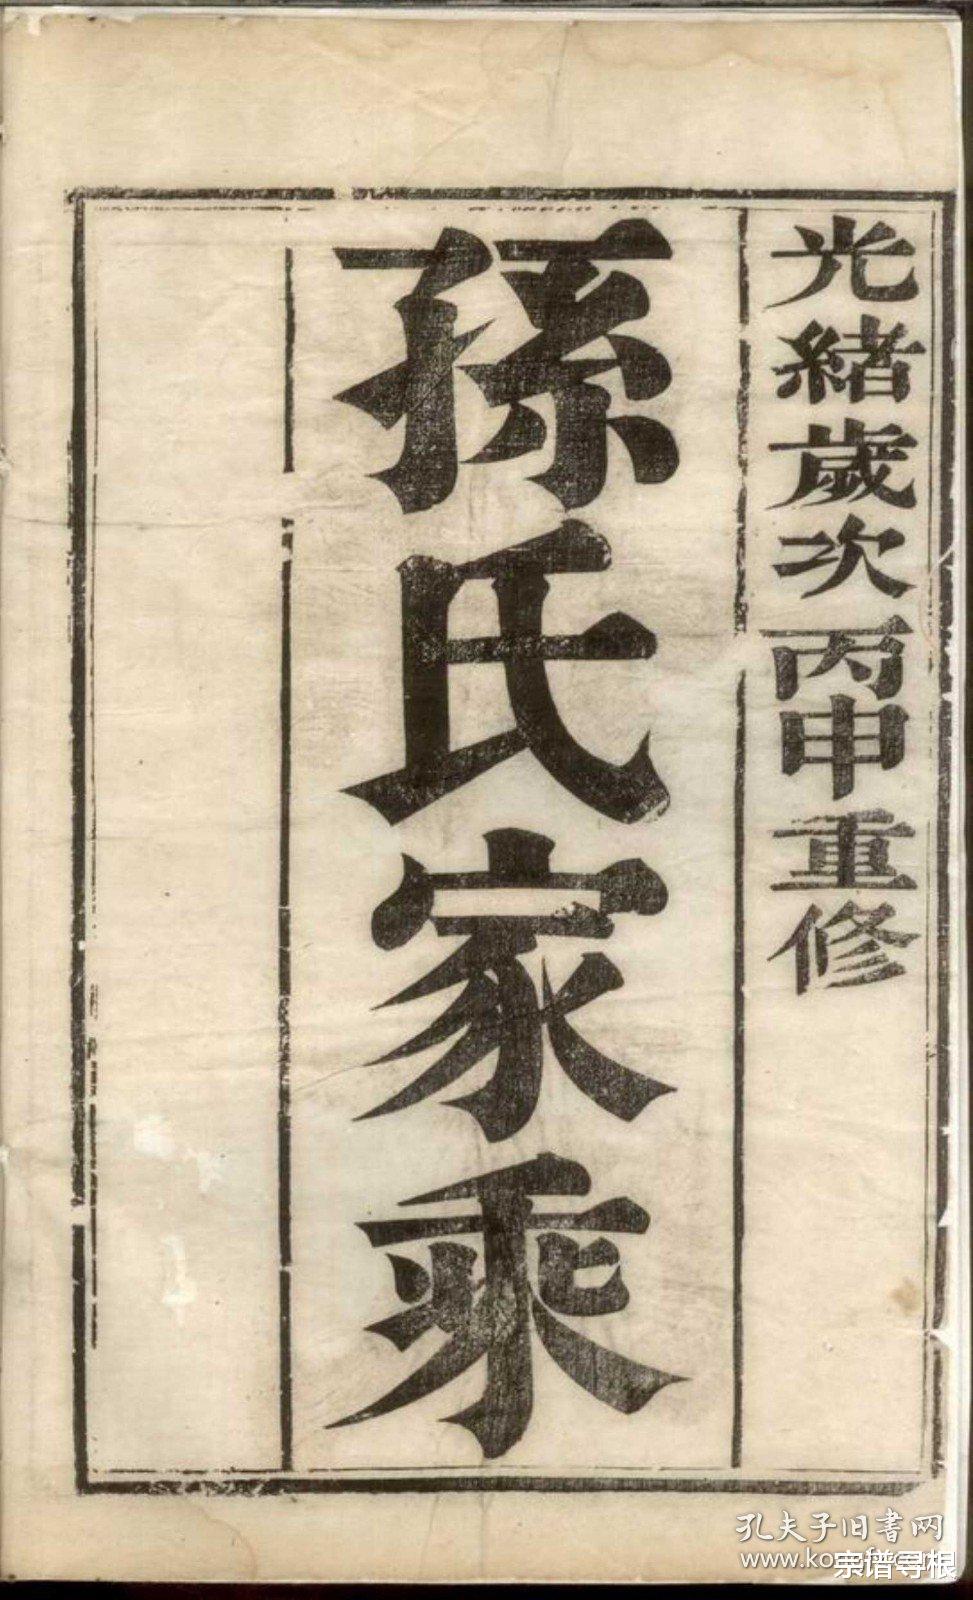 光緒歲次丙申重修
孫氏家乘
孔夫子旧書网
宗谱寻根